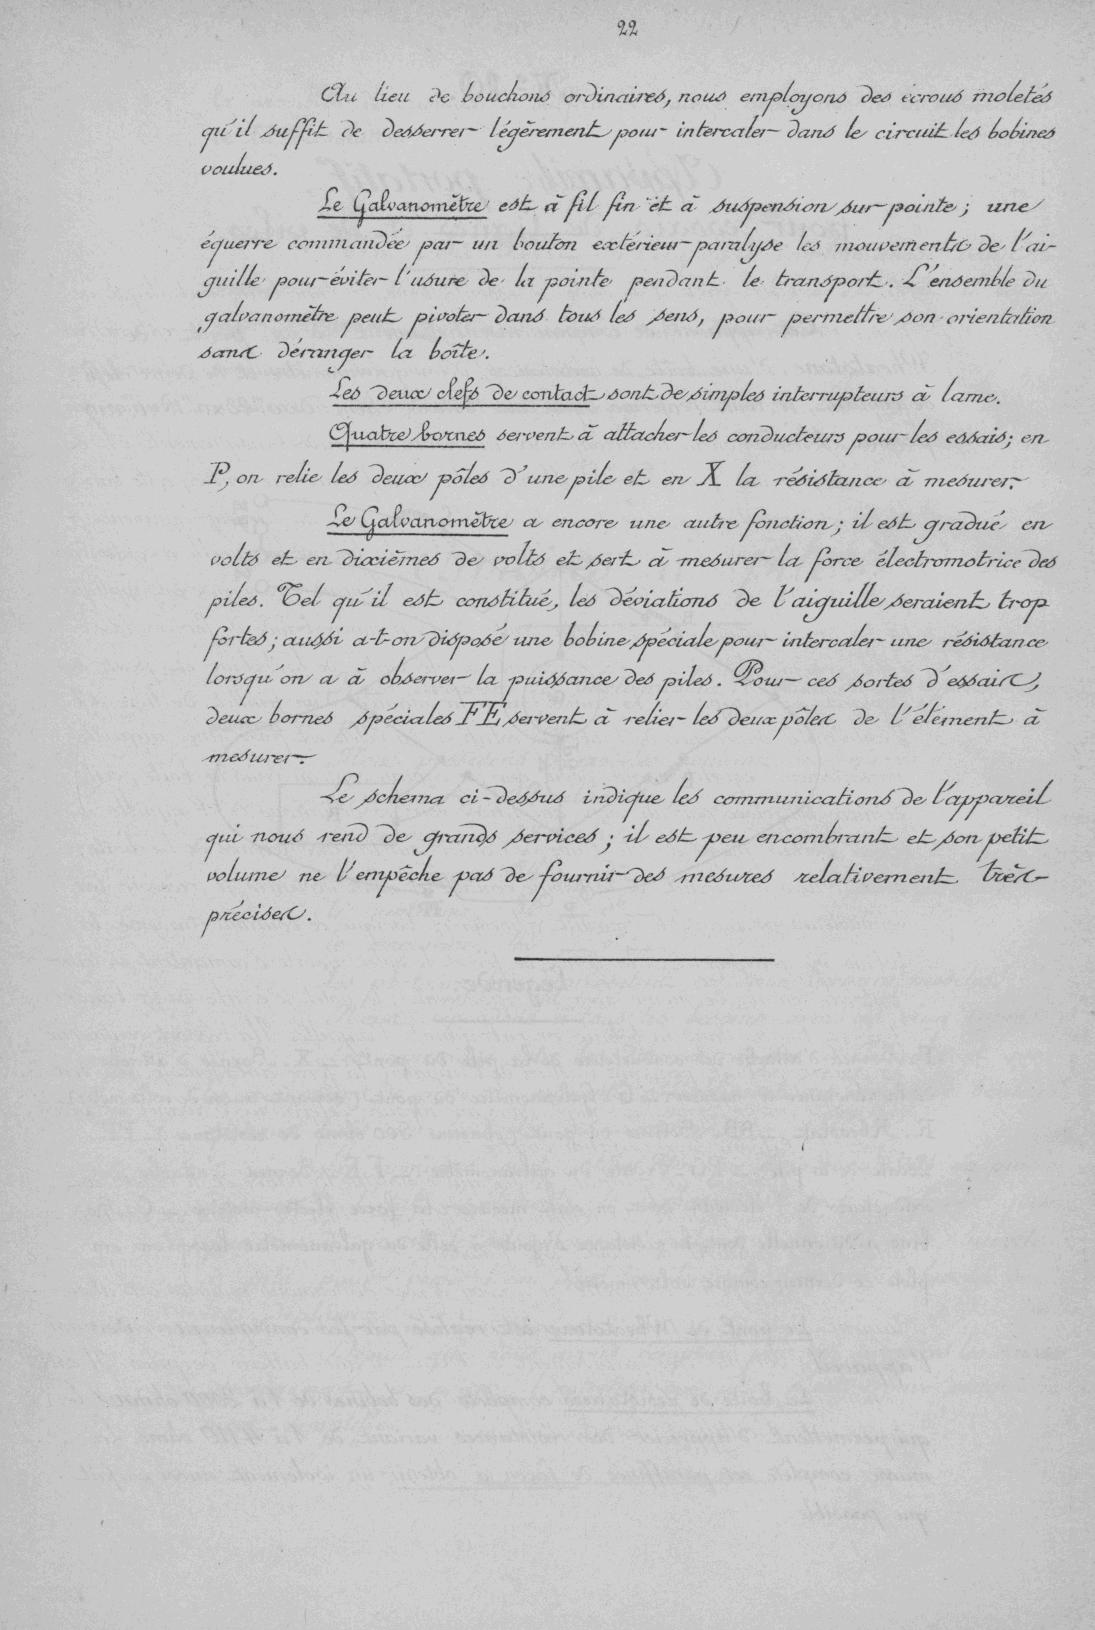 22
Au lieu de bouchons ordinaires, nous employons des écrous moletés
qu'il suffit de desserrer légèrement pour intercaler dans le circuit les bobines
voulues.
Le Galvanomètre est à fil fin et à suspension sur pointe; une
équerre commandée par un bouton extérieur paralyse les mouvements de l'ai-
guille pour éviter l'usure de la pointe pendant le transport. L'ensemble du
galvanomètre peut pivoter dans tous les sens, pour permettre son orientation
sans déranger la boîte.
Les deux clefs de contact sont de simples interrupteurs à lame.
Quatre bornes servent à attacher les conducteurs pour les essais; en
P, on relie les deux pôles d'une pile et en X la résistance à mesurer.
Le Galvanomètre a encore une autre fonction; il est gradué en
volts et en dixièmes de volts et sert à mesurer la force électromotrice des
piles. Tel qu'il est constitué, les déviations de l'aiguille seraient trop
fortes; aussi a-t-on disposé une bobine spéciale pour intercaler une résistance
lorsqu'on a à observer la puissance des piles. Pour ces sortes d'essais,
deux bornes spéciales FE servent à relier les deux pôles de l'élément à
mesurer.
Le schema ci-dessus indique les communications de l'appareil
qui nous rend de grands services; il est peu encombrant et son petit
volume ne l'empêche pas de fournir des mesures relativement très
précises.